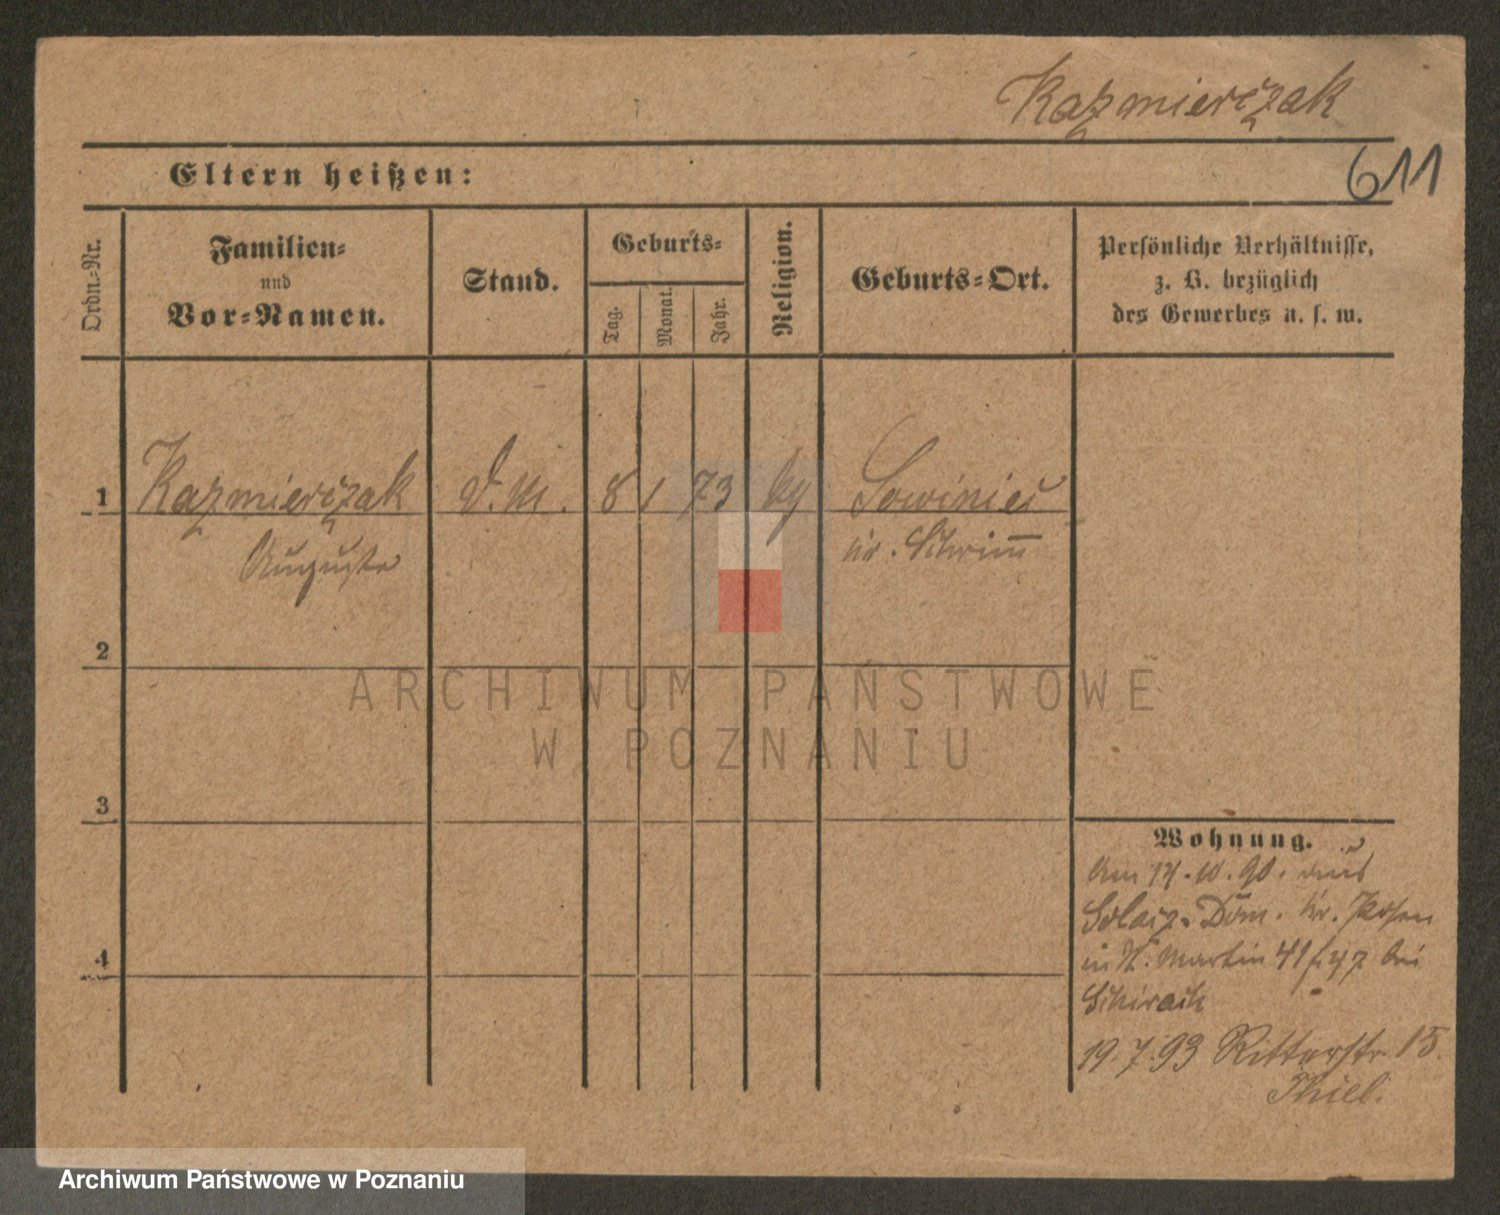 Kaźmierczak
611
Eltern heißen:
Ordn.-Nr.
Familien-
und
Vor-Namen.
Stand.
Geburts-
Tag.
Monat.
Jahr.
Religion.
Geburts-Ort.
Persönliche Verhältnisse,
z. B. bezüglich
des Gewerbes u. s. w.
1 Kaźmierczak D.M. 8 1 73 Sowiniec
Auguste Kr. Schrimm
2
ARCHIWUM PAŃSTWOWE
W POZNANIU
3
Wohnung.
Am 14.10.90. aus
Solacz-Dom. Kr. Posen
in St. Martin 41 bei
Schirach
4
19.7.93 Ritterstr. 15.
Thiel.
Archiwum Państwowe w Poznaniu